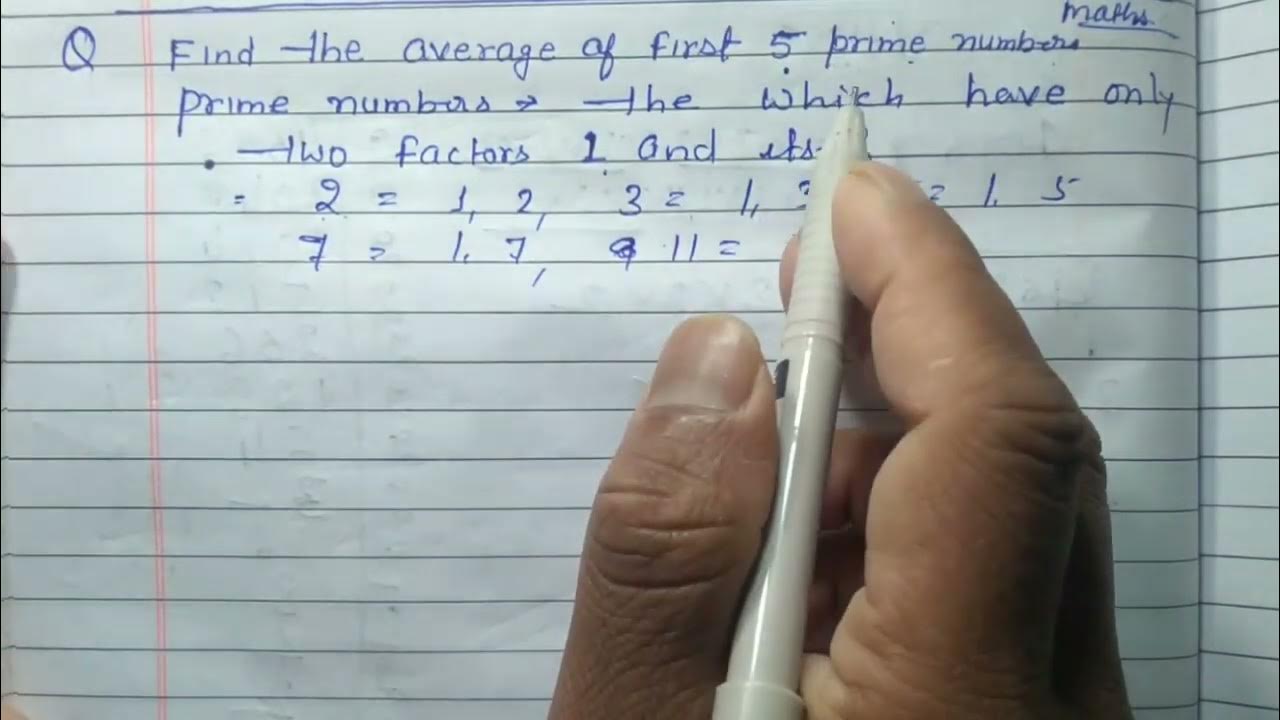 maths
Q Find the average of first 5 prime numbers
prime numbers → the which have only
two factors 1 and its
= 2 = 1, 2, 3 = 1, = 1, 5
7 = 1, 7, 11 =